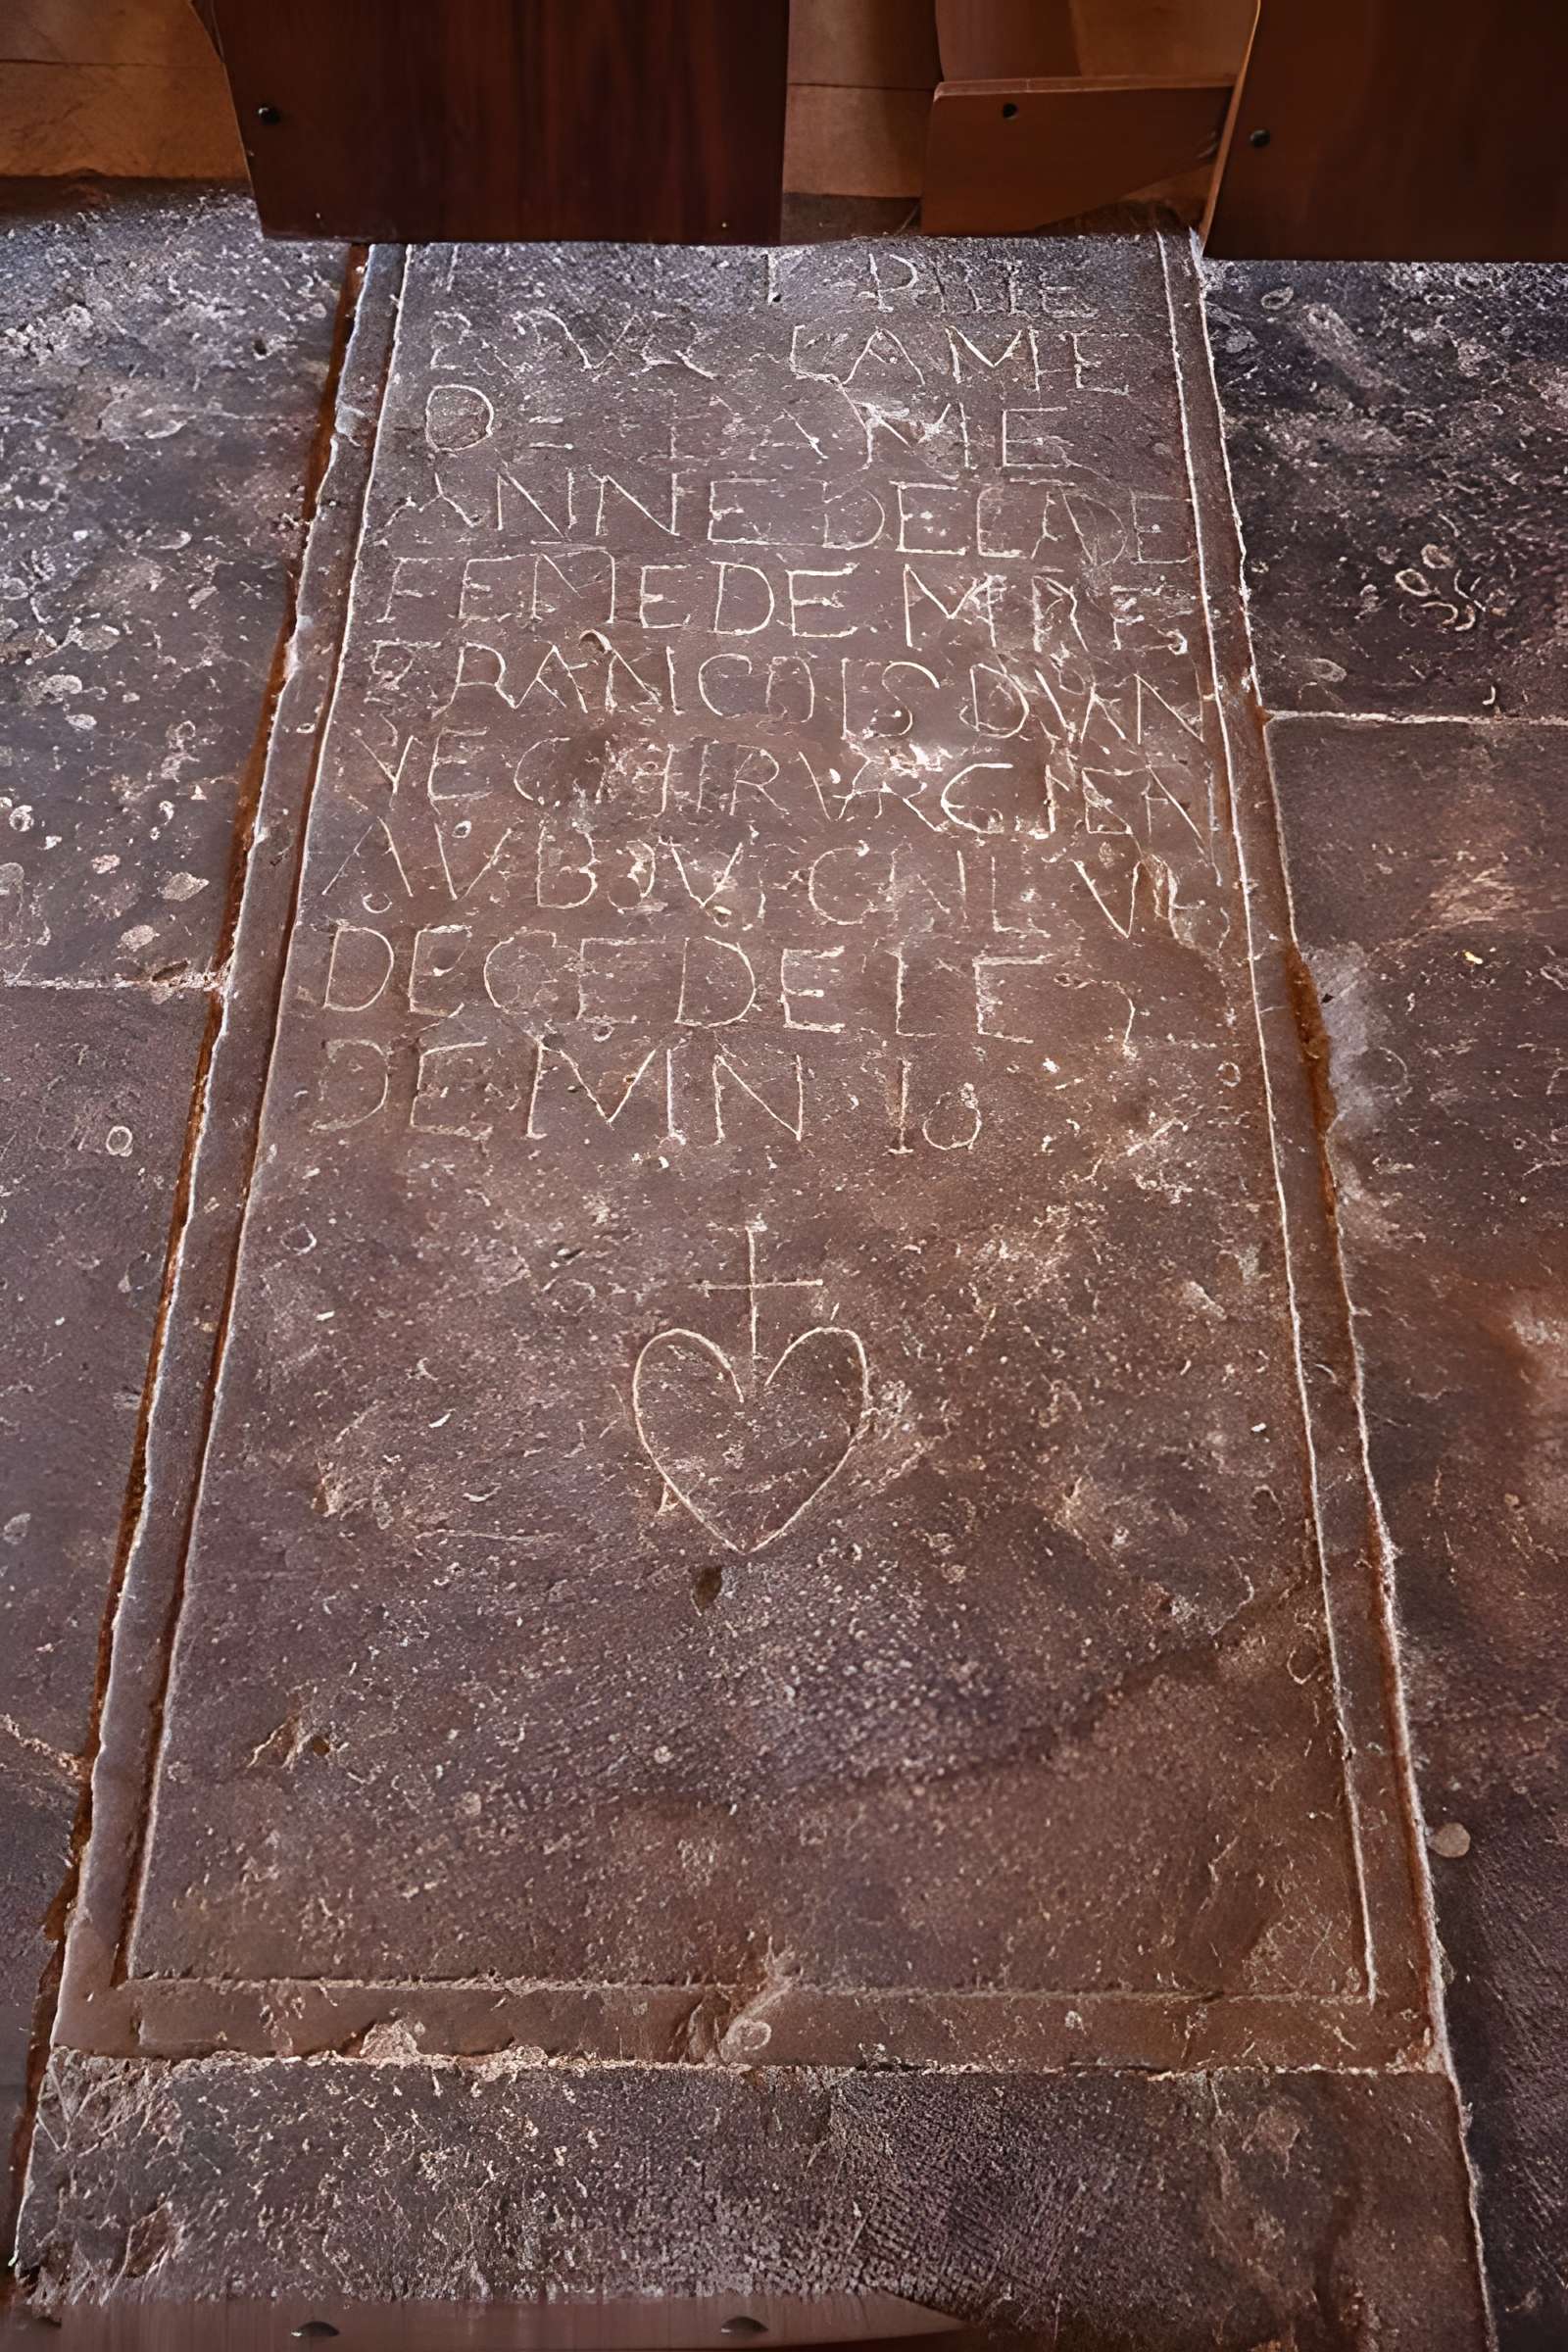 PRIE
POVR LAME
DE DAME
ANNE DELADE
FEME DE MRE
FRANCOIS DVAN
VE CHIRVRGIEN
AV BOV
DECEDE LE
DE IVIN